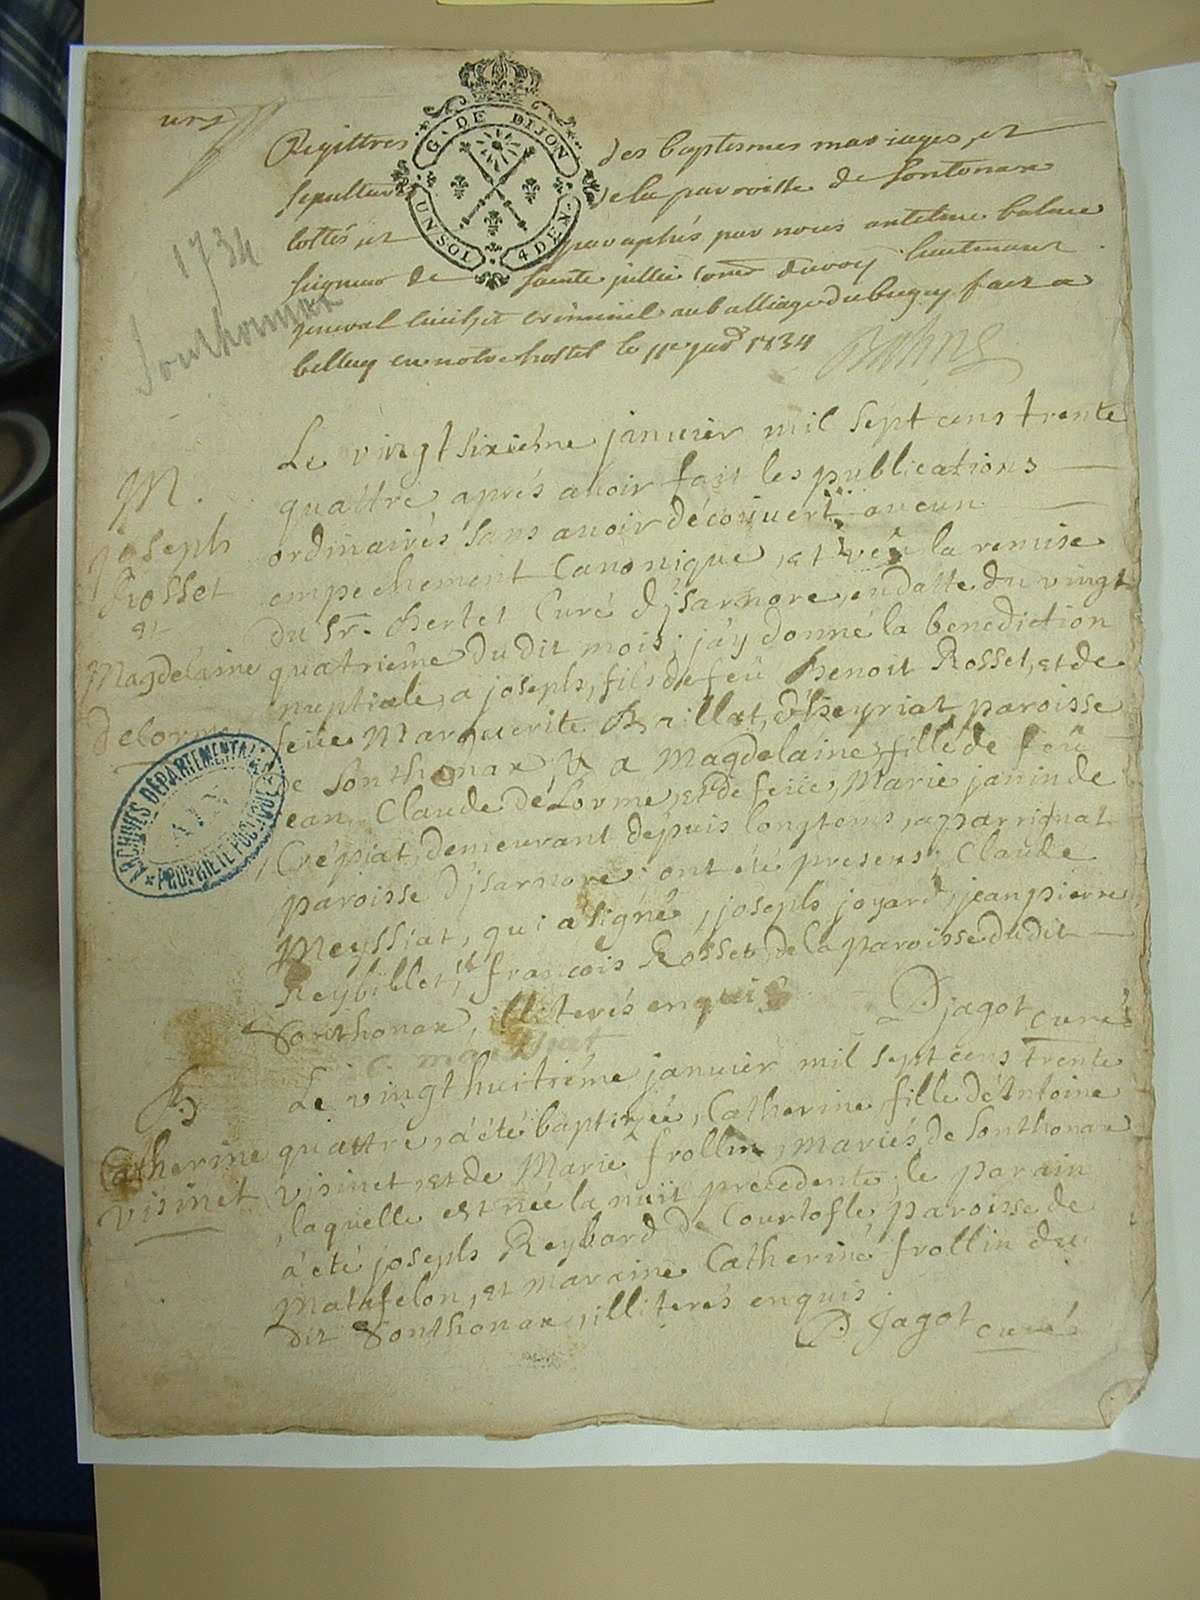 1734
Sonthonax
G. DE DIJON
UN SOL 4 DEN.
Registres des baptesmes mariages, et
sepulture de la parroisse de Sontonax
cottés et paraphés par nous antelme balme
seigneur de Sainte jullie du roy lieutenant
general civil et criminel au balliage du bugey fait a
belley en notre hostel le 1734
Le vingt sixiéme janvier mil sept cens trente
quattre, aprés avoir fait les publications
ordinairés sans avoir découvert aucun
empechement Canonique, et veu la remise
du Sr. Curé Djsarnore, en datte du vingt
quatriéme du dit mois; j'ay donné la benediction
nuptiale, a joseph, fils de feü Benoit Rosset, et de
feüe Marguerite Baillat, d'heyriat paroisse
de Sonthonax, & a Magdelaine, fille de feü
jean Claude de Lorme, et de feüe, Marie janin de
Crépiat, demeurant dépuis longtems, a parrignat
paroisse Djsarnore; ont été presens; Claude
Meyssiat, qui a signé, joseph joyard, jean pierre
Reybillet, et francois Rosset, de la paroisse du dit
Sonthonax, illiterés enquis
D jagot curé
M.
joseph
Rosset
et
Magdelaine
delorme
ARCHIVES DÉPARTEMENTALES
AIN
PROPRIÉTÉ PUBLIQUE
Le vingt huitiéme janvier mil sept cens trente
quattré, a été baptizée, Catherine fille de Antoine
visinet, et de Marie frollin, mariés de Sonthonax
laquelle est née la nuit précédente; le parain
a été joseph Reybard de Courtofle, paroisse de
Matafelon, et maraine Catherine frollin du
dit Sonthonax, illiterés enquis.
D. Jagot curé
B
Catherine
visinet